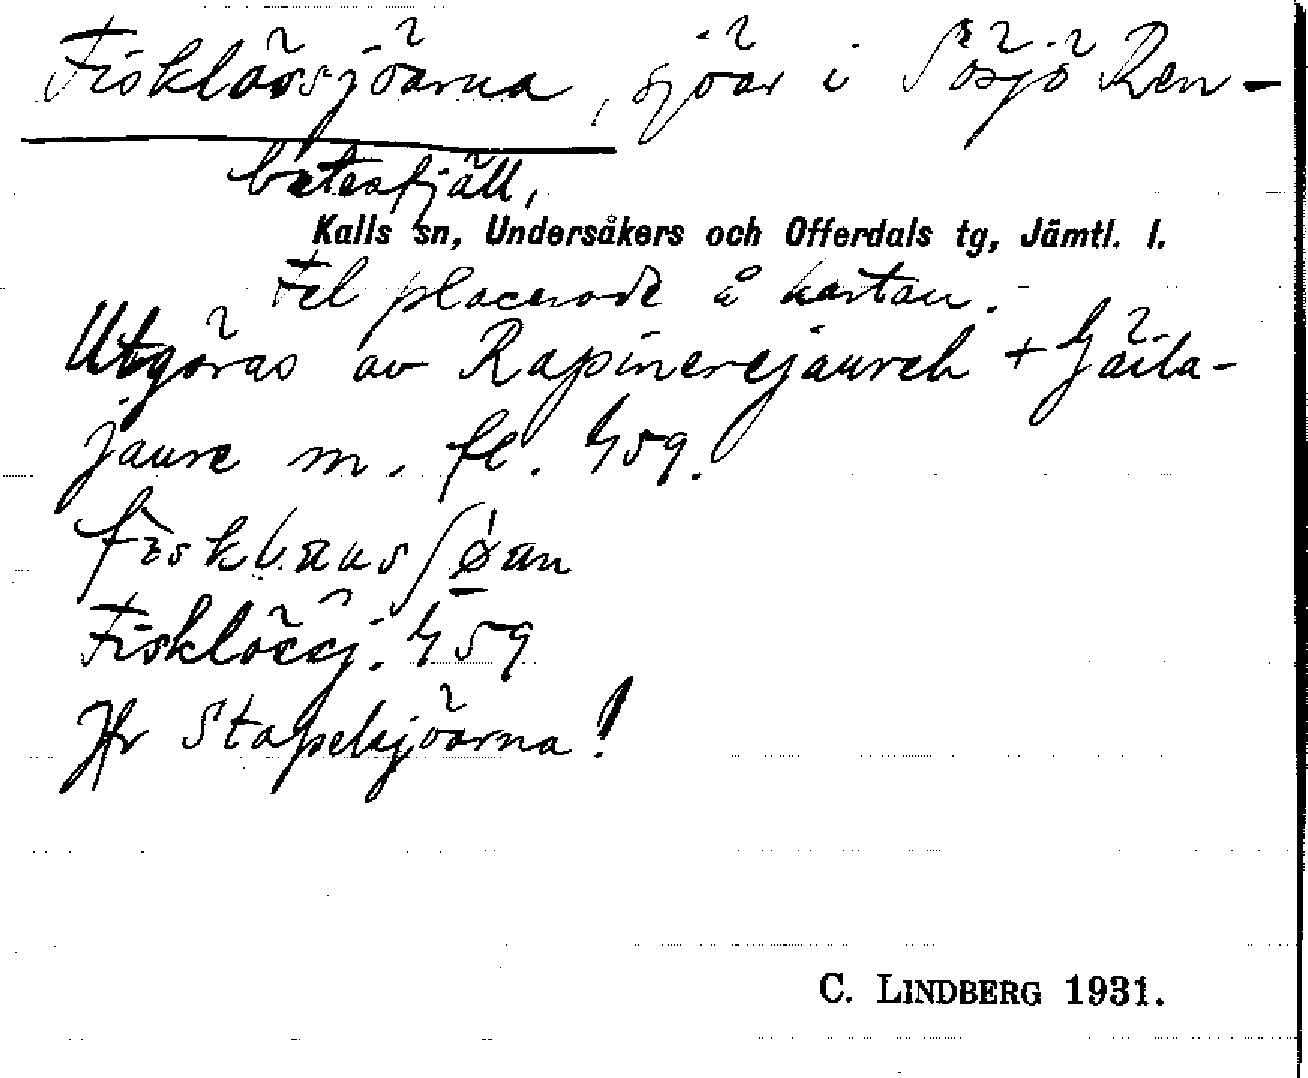 Fisklössjöarna, sjöar i Sösjö Ren-
betesfjäll,
Kalls sn, Undersåkers och Offerdals tg, Jämtl. l.
Fel placerade å kartan.
Utgöras av Rapinerejaureh + Gäila-
jaure m. fl. 459.
Fisklöåsj. 459
Jfr Stapelsjöarna!
C. LINDBERG 1931.